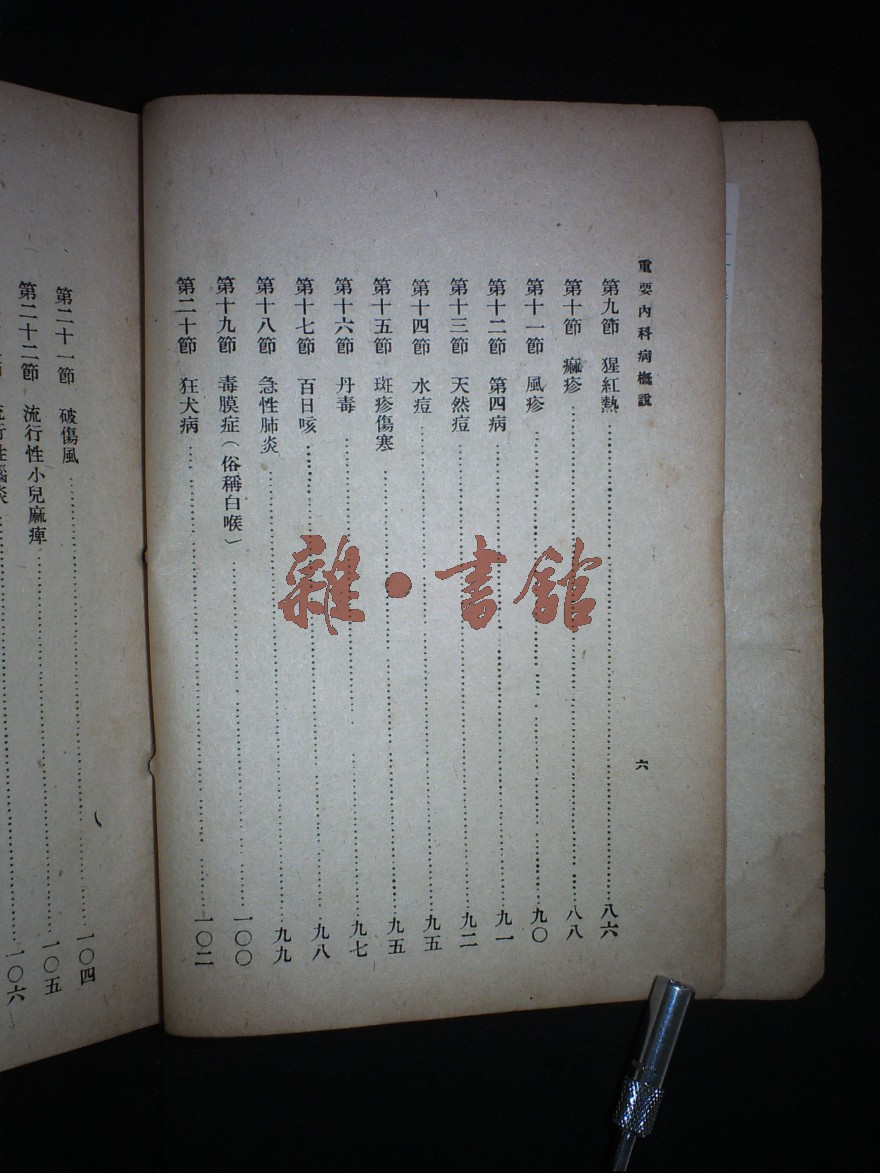 重要內科病概說
六
第九節 猩紅熱……八六
第十節 痲疹……八八
第十一節 風疹……九〇
第十二節 第四病……九一
第十三節 天然痘……九二
第十四節 水痘……九五
第十五節 斑疹傷寒……九五
第十六節 丹毒……九七
第十七節 百日咳……九八
第十八節 急性肺炎……九九
第十九節 毒膜症(俗稱白喉)……一〇〇
第二十節 狂犬病……一〇二
第二十一節 破傷風……一〇四
第二十二節 流行性小兒麻痺……一〇五
節 流行性腦炎……一〇六
雜·書館